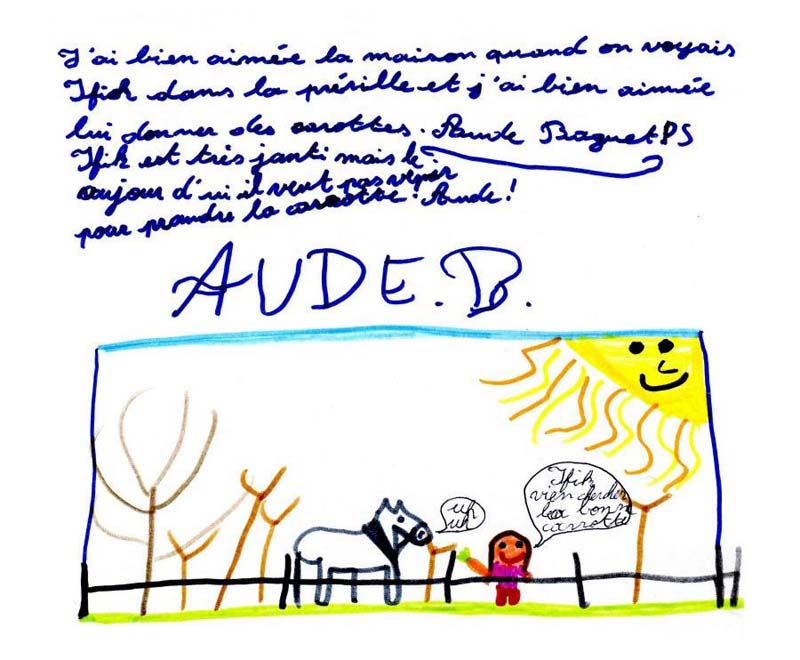 J'ai bien aimée la maison quand on voyais
Ifik dans la prérille et j'ai bien aimée
lui donner des carottes. Aude Baguet PS
Ifik est très janti mais le
aujour d'ui il veut pas venir
pour prandre la carrotte. Aude!
AUDE.B.
uh
uh
Ifik
vien chercher
la bonne
carrotte